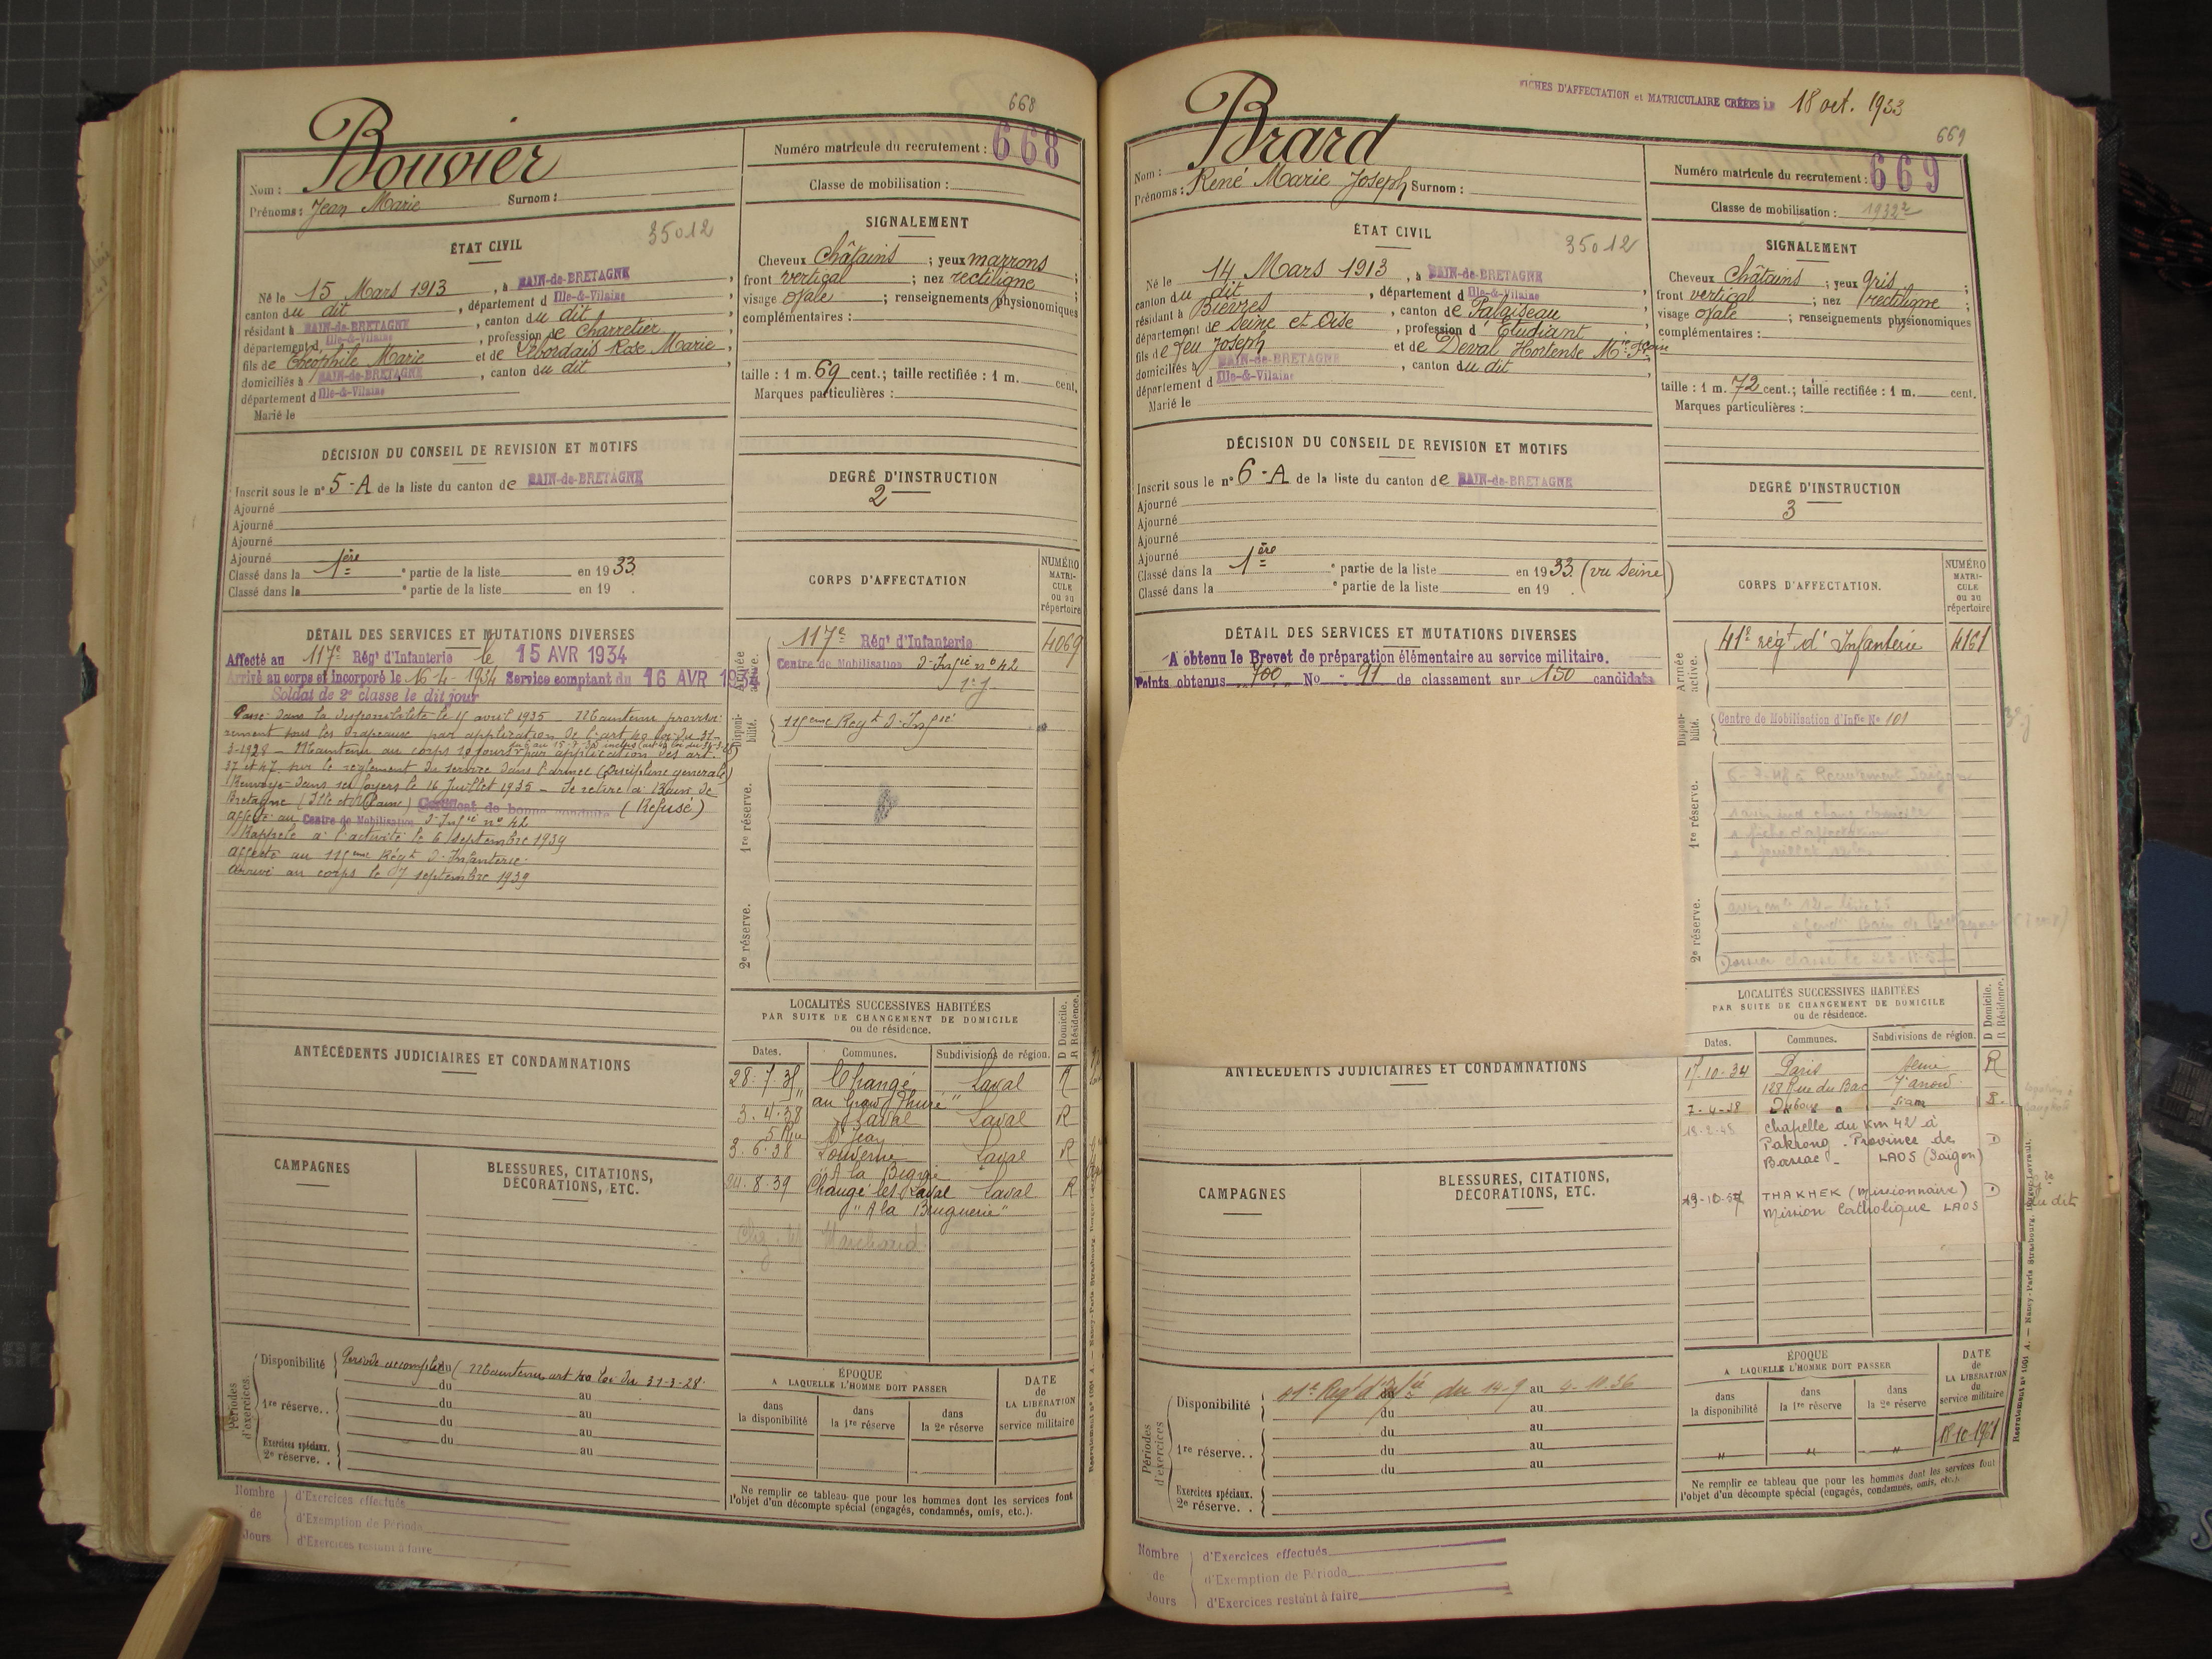 668
Bouvier
Nom :
Prénoms : Jean Marie Surnom :
Numéro matricule du recrutement : 668
Classe de mobilisation :
ÉTAT CIVIL
35012
Né le 15 Mars 1913, à BAIN-de-BRETAGNE,
canton du dit, département d Ille-&-Vilaine,
résidant à BAIN-de-BRETAGNE, canton du dit,
département d Ille-&-Vilaine, profession de Charretier
fils de Théophile Marie et de Lebordais Rose Marie,
domiciliés à BAIN-de-BRETAGNE, canton du dit,
département d Ille-&-Vilaine
Marié le
SIGNALEMENT
Cheveux Châtains ; yeux marrons ;
front vertical ; nez rectiligne ;
visage ovale ; renseignements physionomiques
complémentaires :
taille : 1 m. 69 cent.; taille rectifiée : 1 m. cent.
Marques particulières :
DÉCISION DU CONSEIL DE REVISION ET MOTIFS
Inscrit sous le n° 5-A de la liste du canton de BAIN-de-BRETAGNE
Ajourné
Ajourné
Ajourné
Ajourné
Classé dans la 1ère e partie de la liste en 1933.
Classé dans la e partie de la liste en 19 .
DEGRÉ D'INSTRUCTION
2
CORPS D'AFFECTATION
NUMÉRO MATRICULE ou au répertoire
Armée active.
117e Rég' d'Infanterie 4069
Centre de Mobilisation d'Infie n° 42
Disponibilité.
115eme Regt d'Infie
1re réserve.
2e réserve.
DÉTAIL DES SERVICES ET MUTATIONS DIVERSES
Affecté au 117e Rég' d'Infanterie le 15 AVR 1934
Arrivé au corps et incorporé le 16-4-1934 Service comptant du 16 AVR 1934
Soldat de 2e classe le dit jour
Passé dans la disponibilité le 15 avril 1935 – Maintenu provisoi-
rement sous les drapeaux par application de l'art 40 loi du 31-
3-1928 – Maintenu au corps 10 jours par application des art.
37 et 47 sur le règlement du service dans l'armée (Discipline générale)
Renvoyé dans ses foyers le 16 Juillet 1935 – Se retire à Bain de
Bretagne (Ille et Vilaine) Certificat de bonne conduite (Refusé)
affecté au Centre de Mobilisation d'Infie n° 42
Rappelé à l'activité le 6 septembre 1939
affecté au 115eme Régt d'Infanterie
arrivé au corps le 7 septembre 1939
ANTÉCÉDENTS JUDICIAIRES ET CONDAMNATIONS
LOCALITÉS SUCCESSIVES HABITÉES
PAR SUITE DE CHANGEMENT DE DOMICILE
ou de résidence.
D Domicile.
R Résidence.
Dates. Communes. Subdivisions de région.
28-7-35 Changé Laval R
3-4-38 Laval Laval R
5 Rue St Jean
3-6-38 Louverné Laval R
24-8-39 Changé les Laval Laval R
CAMPAGNES
BLESSURES, CITATIONS,
DÉCORATIONS, ETC.
Périodes d'exercices.
Disponibilité Période accomplie du (Maintenu art 40 loi du 31-3-28.
du au
1re réserve.. du au
du au
Exercices spéciaux.
2e réserve. . du au
ÉPOQUE
A LAQUELLE L'HOMME DOIT PASSER
dans la disponibilité
dans la 1re réserve
dans la 2e réserve
DATE
de
LA LIBÉRATION
du
service militaire
Ne remplir ce tableau que pour les hommes dont les services font
l'objet d'un décompte spécial (engagés, condamnés, omis, etc.).
Nombre de Jours
d'Exercices effectués
d'Exemption de Période
d'Exercices restant à faire
FICHES D'AFFECTATION et MATRICULAIRE CRÉÉES LE 18 oct. 1933
669
Brard
Nom :
Prénoms : René Marie Joseph Surnom :
Numéro matricule du recrutement : 669
Classe de mobilisation : 1932²
ÉTAT CIVIL
35012
Né le 14 Mars 1913, à BAIN-de-BRETAGNE
canton du dit, département d Ille-&-Vilaine,
résidant à Bièvres, canton de Palaiseau
département de Seine et Oise, profession d'Etudiant
fils de feu Joseph et de Deval Hortense
domiciliés à BAIN-de-BRETAGNE, canton du dit,
département d Ille-&-Vilaine
Marié le
SIGNALEMENT
Cheveux Châtains ; yeux gris ;
front vertical ; nez rectiligne ;
visage ovale ; renseignements physionomiques
complémentaires :
taille : 1 m. 72 cent.; taille rectifiée : 1 m. cent.
Marques particulières :
DÉCISION DU CONSEIL DE REVISION ET MOTIFS
Inscrit sous le n° 6-A de la liste du canton de BAIN-de-BRETAGNE
Ajourné
Ajourné
Ajourné
Ajourné
Classé dans la 1ère e partie de la liste en 1933. (vu Seine)
Classé dans la e partie de la liste en 19 .
DEGRÉ D'INSTRUCTION
3
CORPS D'AFFECTATION.
NUMÉRO MATRICULE ou au répertoire
Armée active.
41e regt d'Infanterie 4161
Disponibilité.
Centre de Mobilisation d'Infie N° 101
1re réserve.
2e réserve.
DÉTAIL DES SERVICES ET MUTATIONS DIVERSES
A obtenu le Brevet de préparation élémentaire au service militaire.
Points obtenus 700 No 91 de classement sur 150 candidats
ANTÉCÉDENTS JUDICIAIRES ET CONDAMNATIONS
LOCALITÉS SUCCESSIVES HABITÉES
PAR SUITE DE CHANGEMENT DE DOMICILE
ou de résidence.
D Domicile.
R Résidence.
Dates. Communes. Subdivisions de région.
17-10-34 Paris Seine R
128 Rue du Bac 7e arrond.
7-4-38 Oubone Siam R.
chapelle du Km 42 à
Paksong. Province de
Bassac – LAOS (Saïgon) D
19-10-57 THAKHEK (Missionnaire) D
Mission Catholique LAOS
CAMPAGNES
BLESSURES, CITATIONS,
DÉCORATIONS, ETC.
Périodes d'exercices
Disponibilité du 14-9 au 4-10-36
du au
1re réserve.. du au
du au
du au
Exercices spéciaux.
2e réserve. .
ÉPOQUE
A LAQUELLE L'HOMME DOIT PASSER
dans la disponibilité
dans la 1re réserve
dans la 2e réserve
DATE
de
LA LIBÉRATION
du
service militaire
" " " 18-10-1961
Ne remplir ce tableau que pour les hommes dont les services font
l'objet d'un décompte spécial (engagés, condamnés, omis, etc.).
Nombre de Jours
d'Exercices effectués
d'Exemption de Période
d'Exercices restant à faire